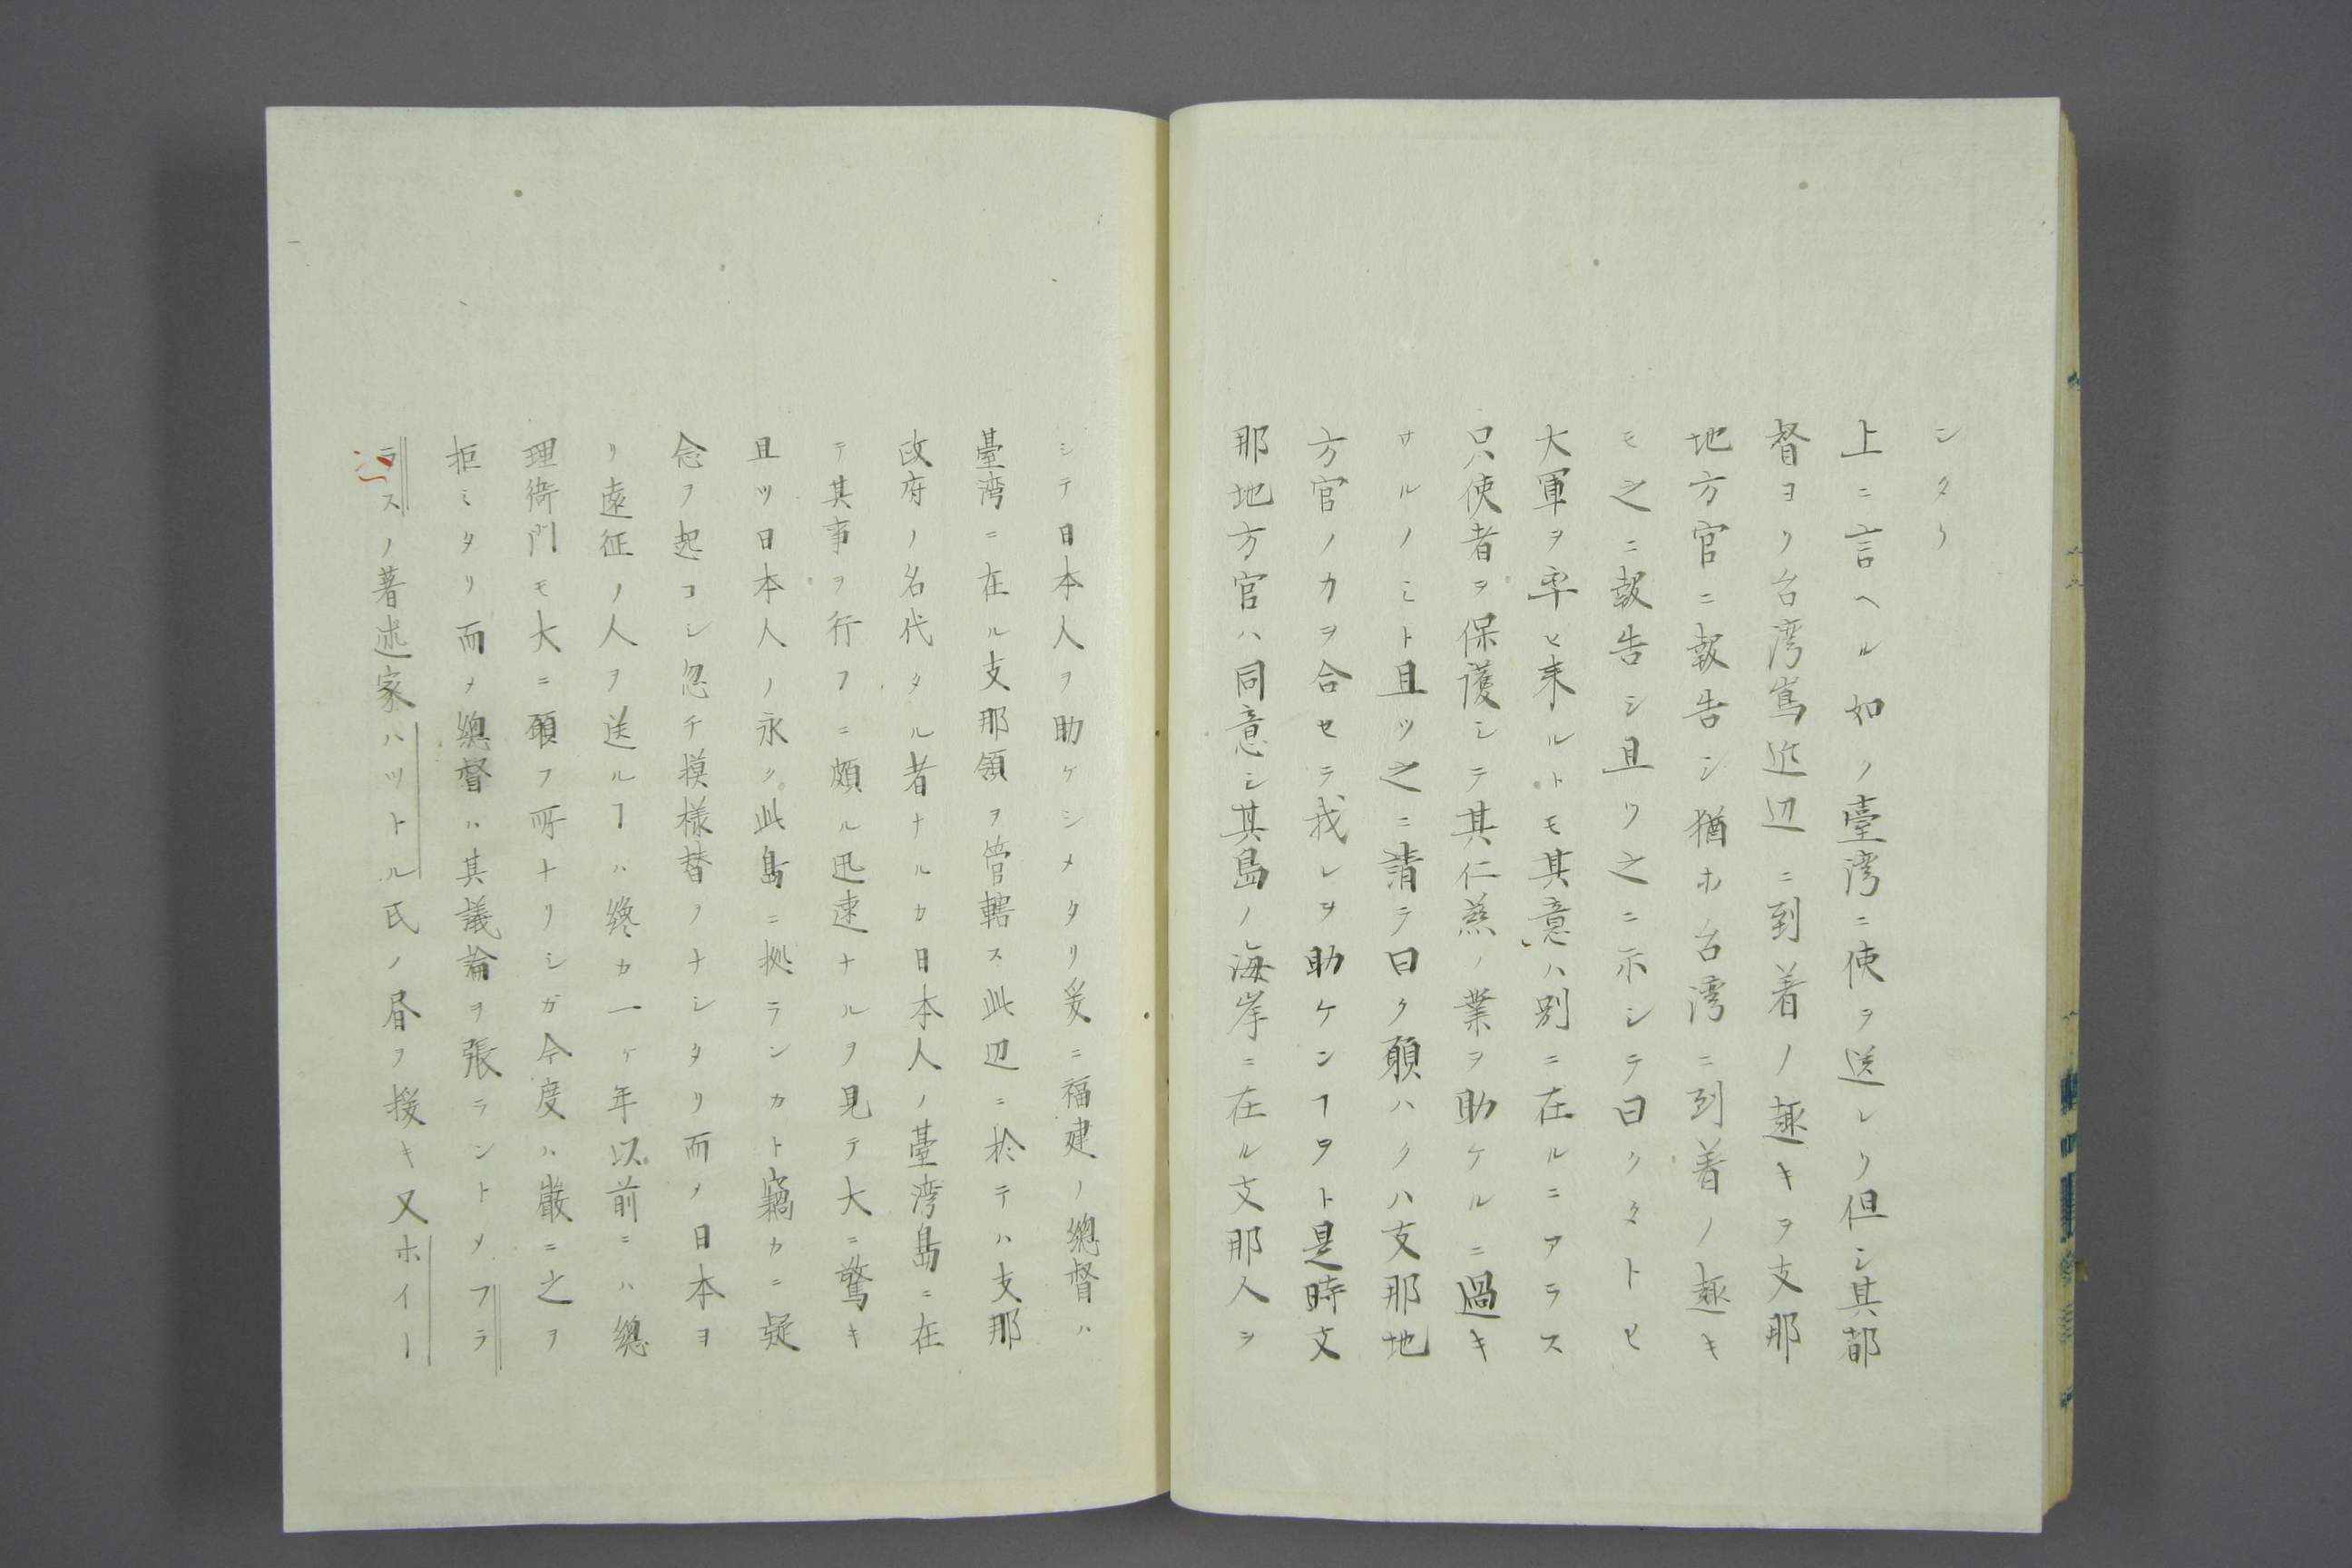 ンタリ
上ニ言ヘル如ク臺湾ニ使ヲ送レリ但シ其都
督ヨリ台湾嶌近辺ニ到着ノ趣キヲ支那
地方官ニ報告シ猶ホ台湾ニ到着ノ趣キ
モ之ニ報告シ且ツ之ニ示シテ曰クタトヒ
大軍ヲ率ヒ来ルトモ其意ハ別ニ在ルニアラス
只使者ヲ保護シテ其仁慈ノ業ヲ助ケルニ過キ
サルノミト且ツ之ニ請テ曰ク願ハクハ支那地
方官ノカヲ合セテ我レヲ助ケンヿヲト是時支
那地方官ハ同意シ其島ノ海岸ニ在ル支那人ヲ
シテ日本人ヲ助ケシメタリ爰ニ福建ノ總督ハ
臺湾ニ在ル支那領ヲ管轄ス此辺ニ於テハ支那
政府ノ名代タル者ナルカ日本人ノ臺湾島ニ在
テ其事ヲ行フニ頗ル迅速ナルヲ見テ大ニ驚キ
且ツ日本人ノ永ク此島ニ拠ランカト竊カニ疑
念ヲ起コシ忽チ摸様替ヲナシタリ而メ日本ヨ
リ遠征ノ人ヲ送ルヿハ纔カ一ケ年以前ニハ總
理衙門モ大ニ願フ所ナリシガ今度ハ嚴ニ之ヲ
拒ミタリ而メ總督ハ其議論ヲ張ラントメフラ
ラスノ著述家ハツトル氏ノ昏ヲ援キ又ホイー